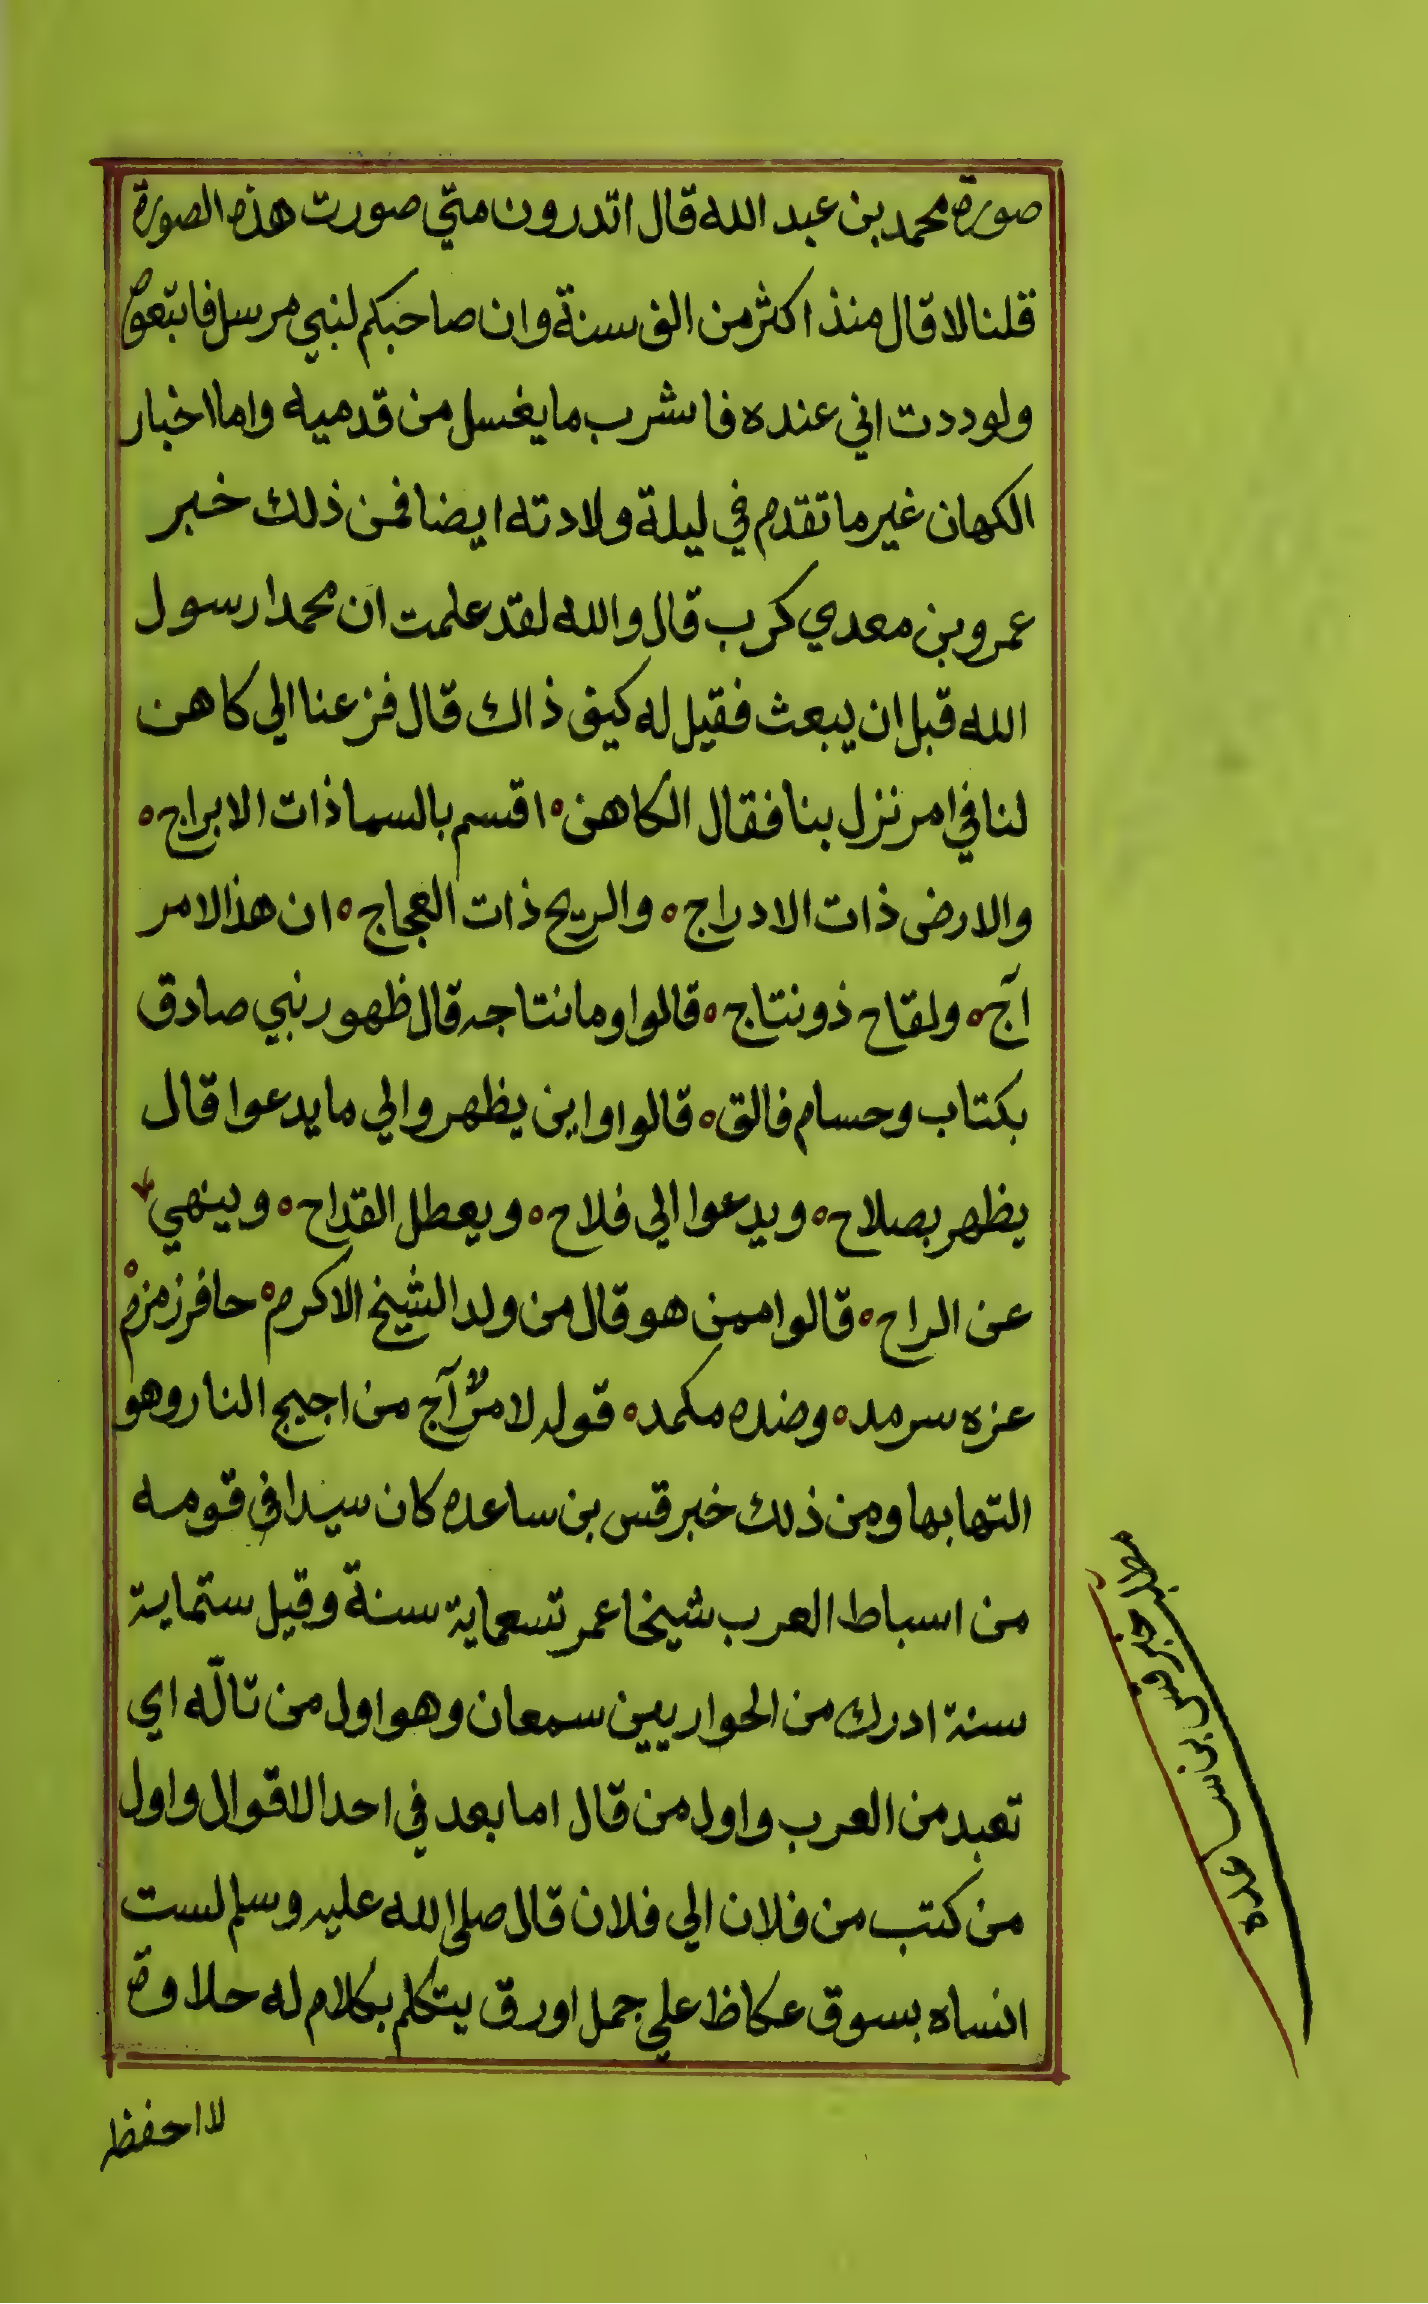 صورة محمد بن عبد الله قال اتدرون متي صورت هذه الصورة
قلنا لا قال منذ اكثر من الف سنة وان صاحبكم لنبي مرسل فاتبعوه
ولوددت اني عنده فاشرب ما يغسل من قدميه واما اخبار
الكهان غير ما تقدم في ليلة ولادته ايضا فمن ذلك خبر
عمرو بن معدي كرب قال والله لقد علمت ان محمدا رسول
الله قبل ان يبعث فقيل له كيف ذاك قال فزعنا الي كاهن
لنا في امر نزل بنا فقال الكاهن ه اقسم بالسما ذات الابراج ه
والارض ذات الادراج ه والريح ذات العجاج ه ان هذا الامر
آج ه ولقاح ذو نتاج ه قالوا وما نتاجه قال ظهور نبي صادق
بكتاب وحسام فالق ه قالوا واين يظهر والي ما يدعوا قال
يظهر بصلاح ه ويدعوا الي فلاح ه ويعطل القداح ه وينهي
عن الراح ه قالوا ممن هو قال من ولد الشيخ الاكرم ه حافر زمزم ه
عزه سرمد ه وضده مكمد ه قوله لامرٌ آج من اجيج النار وهو
التهابها ومن ذلك خبر قس بن ساعده كان سيدا في قومه
من اسباط العرب شيخا عمر تسعماية سنة وقيل ستماية
سنة ادرك من الحواريين سمعان وهو اول من تالّه اي
تعبد من العرب واول من قال اما بعد في احد الاقوال واول
من كتب من فلان الي فلان قال صلي الله عليه وسلم لست
انساه بسوق عكاظ علي جمل اورق يتكلم بكلام له حلاوة
لا احفظه
مطلب خبر قس بن ساعده